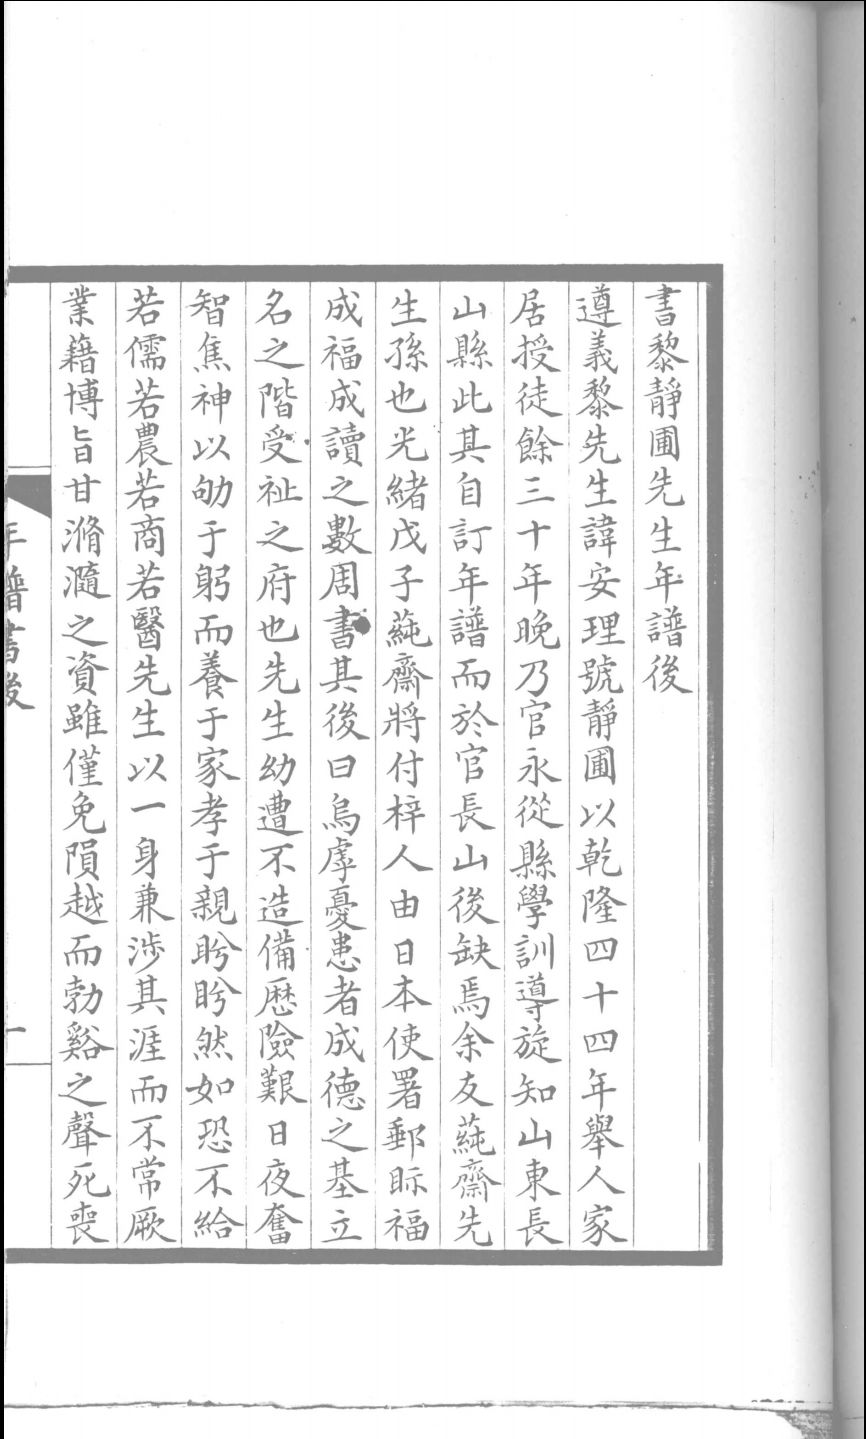 書黎靜圃先生年譜後
遵義黎先生諱安理號靜圃以乾隆四十四年舉人家
居授徒餘三十年晚乃官永從縣學訓導旋知山東長
山縣此其自訂年譜而於官長山後缺焉余友蒓齋先
生孫也光緒戊子蒓齋將付梓人由日本使署郵眎福
成福成讀之數周書其後曰烏虖憂患者成德之基立
名之階受祉之府也先生幼遭不造備歷險艱日夜奮
智焦神以劬于躬而養于家孝于親盻盻然如恐不給
若儒若農若商若醫先生以一身兼涉其涯而不常厥
業藉博旨甘滫瀡之資雖僅免隕越而勃谿之聲死喪
年譜書後
一